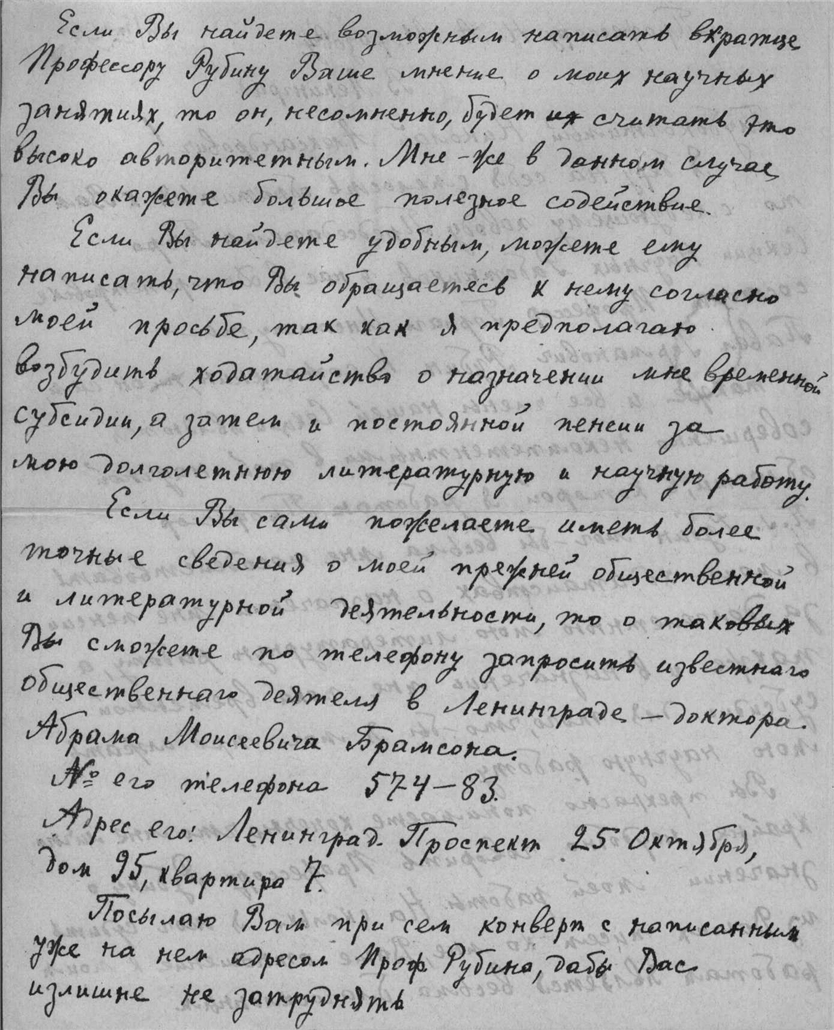 Если Вы найдете возможным написать вкратце
Профессору Рубину Ваше мнение о моих научных
занятиях, то он, несомненно, будет их считать это
высоко авторитетным. Мне-же в данном случае
Вы окажете большое полезное содействие.
Если Вы найдете удобным, можете ему
написать, что Вы обращаетесь к нему согласно
моей просьбе, так как я предполагаю
возбудить ходатайство о назначении мне временной
субсидии, а затем и постоянной пенсии за
мою долголетнюю литературную и научную работу.
Если Вы сами пожелаете иметь более
точные сведения о моей прежней общественной
и литературной деятельности, то о таковых
Вы сможете по телефону запросить известнаго
общественнаго деятеля в Ленинграде – доктора
Абрама Моисеевича Брамсона.
№ его телефона 574-83.
Адрес его: Ленинград. Проспект 25 Октября,
дом 95, квартира 7.
Посылаю Вам при сем конверт с написанным
уже на нем адресом Проф Рубина, дабы Вас
излишне не затруднять